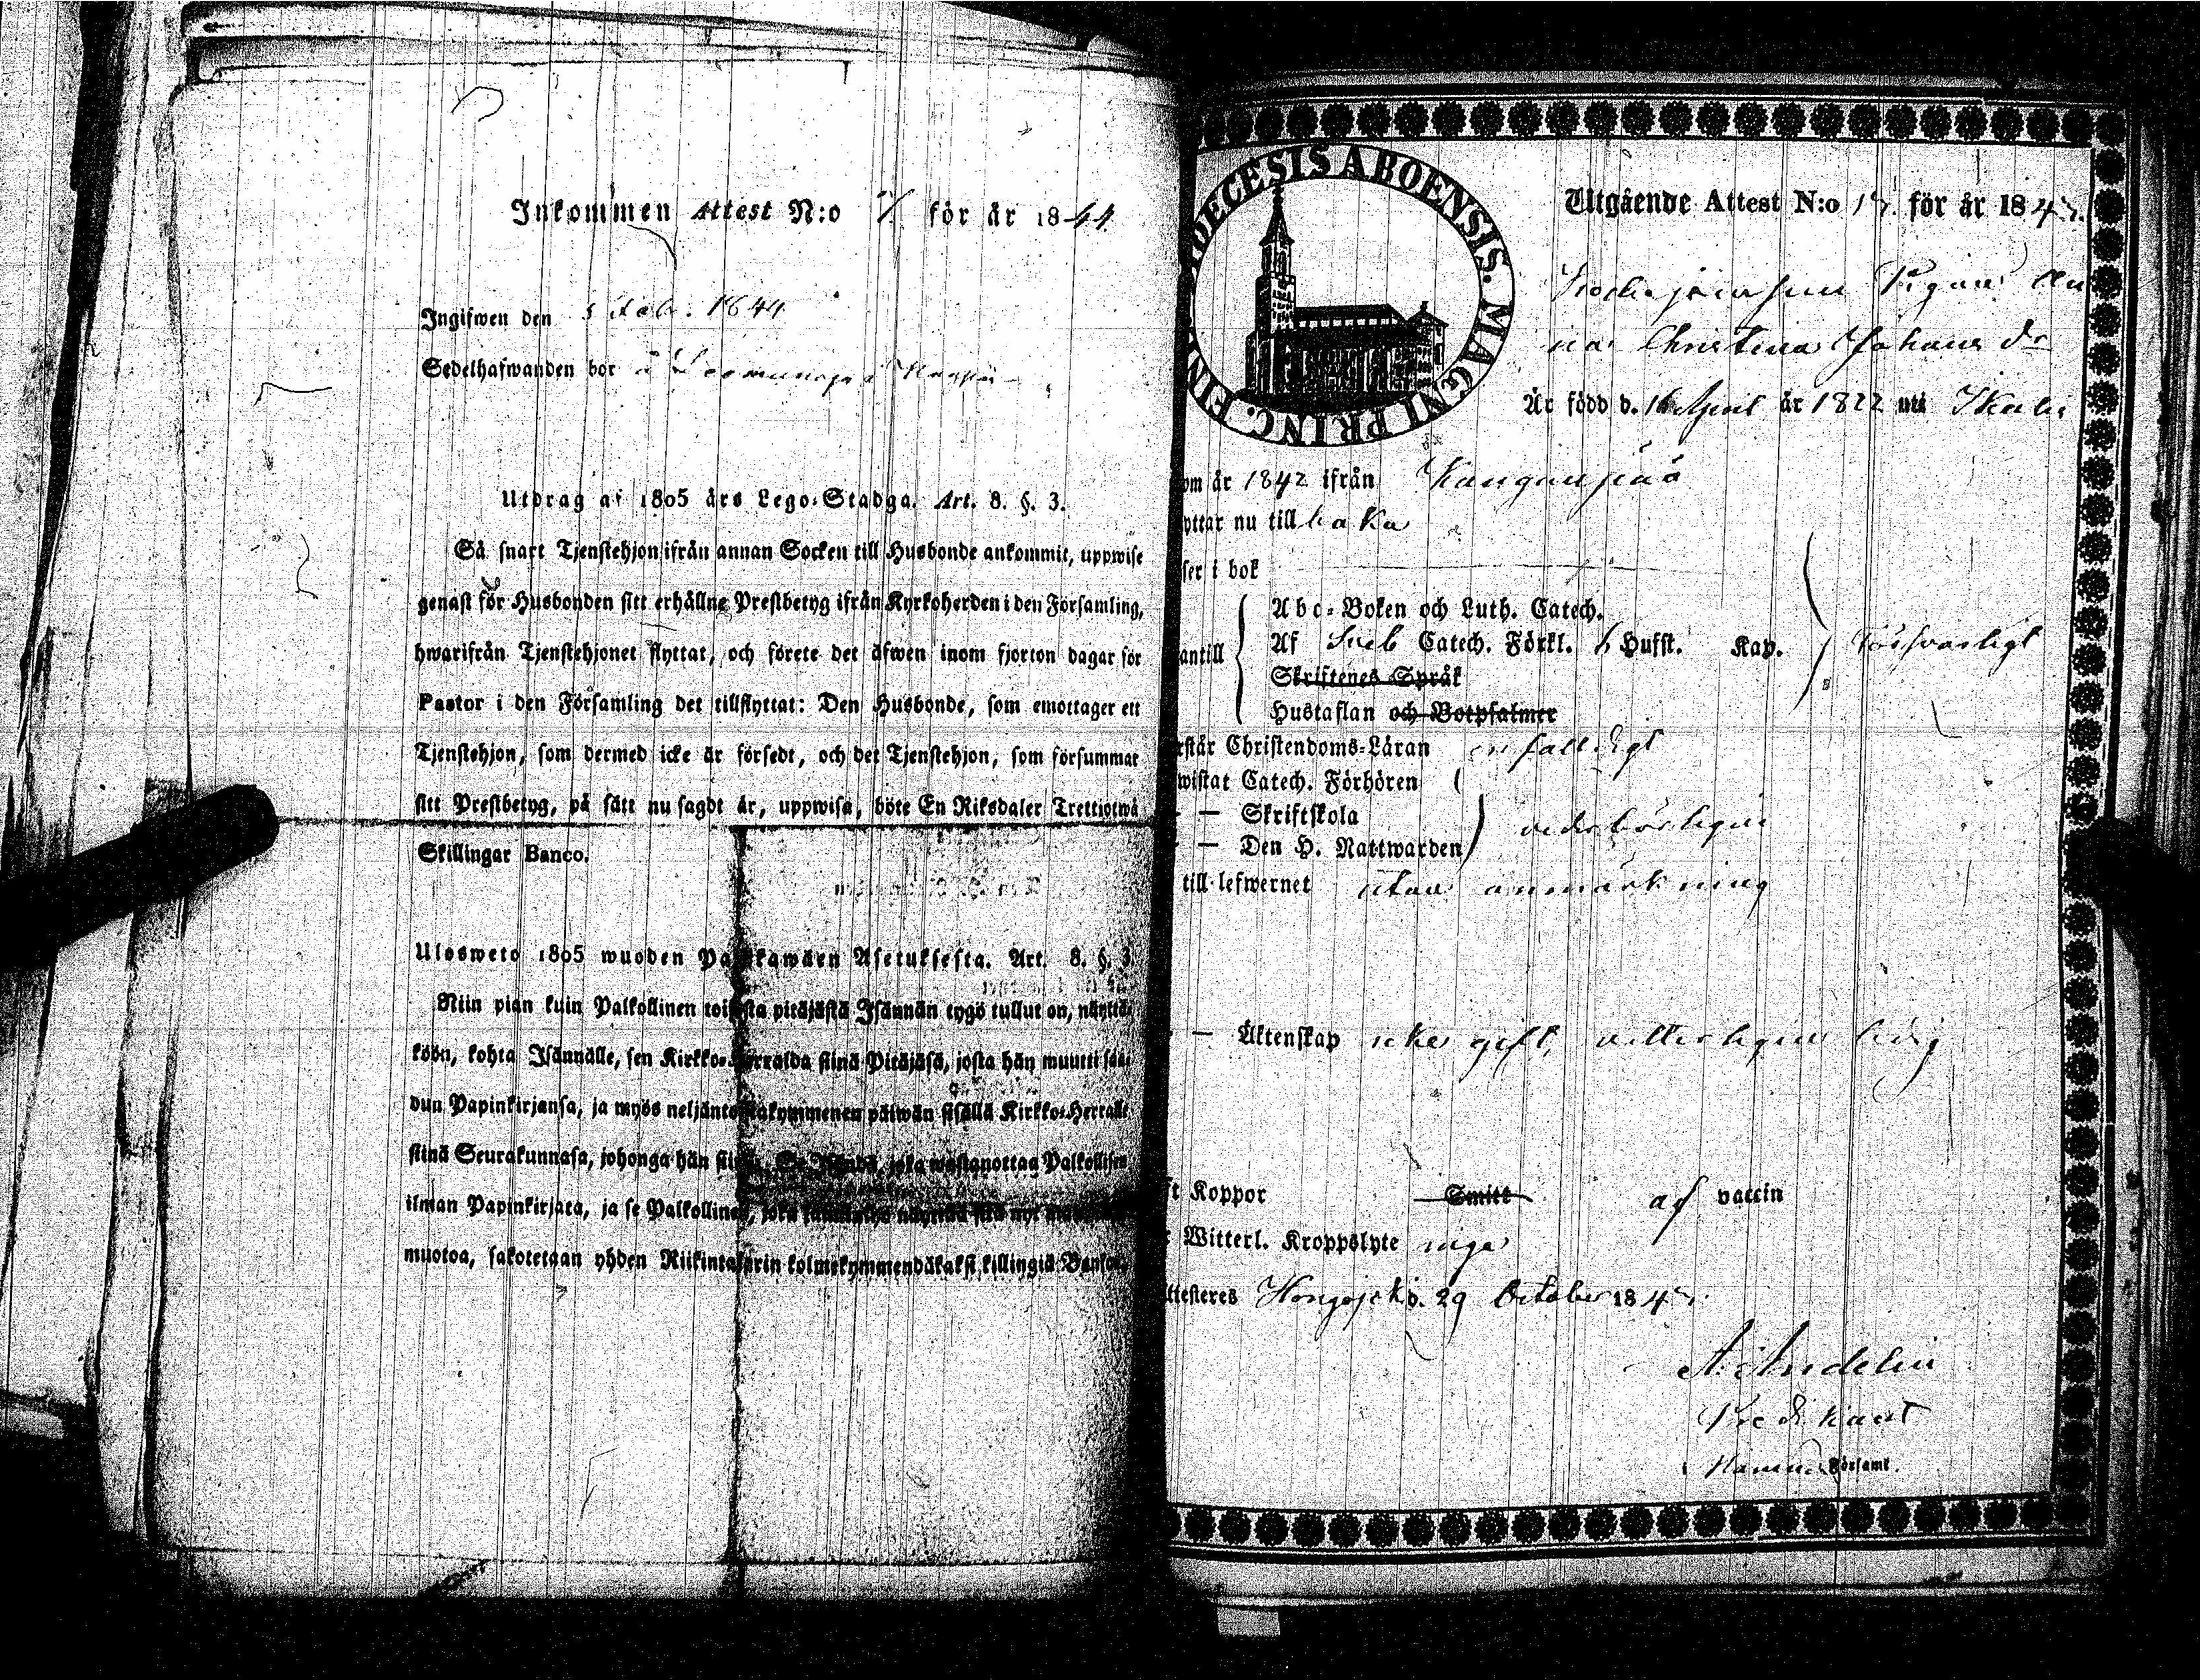 Inkommen Attest N:o för år 1844
Ingifwen den 5 Febr. 1844
Sedelhafwanden bor å
Utdrag af 1805 års Lego-Stadga. Art. 8. §. 3.
Så snart Tjenstehjon ifrån annan Socken till Husbonde ankommit, uppwise
genast för Husbonden sitt erhållne Prestbetyg ifrån Kyrkoherden i den Församling,
hwarifrån Tjenstehjonet flyttat, och förete det äfwen inom fjorton dagar för
Pastor i den Församling det tillflyttat: Den Husbonde, som emottager ett
Tjenstehjon, som dermed icke är försedt, och det Tjenstehjon, som försummar
sitt Prestbetyg, på sätt nu sagdt är, uppwisa, böte En Riksdaler Trettiotwå
Skillingar Banco.
Ulosweto 1805 wuoden Palkkawäen Asetuksesta. Art. 8. §. 3.
Niin pian kuin Palkollinen toisesta pitäjästä Isännän tygö tullut on, näyttä-
köön, kohta Isännälle, sen Kirkko-Herralda siinä Pitäjäsä, josta hän muutti saa-
dun Papinkirjansa, ja myös neljäntoistakymmenen päiwän sisällä Kirkko-Herralle
siinä Seurakunnasa, johonga hän Se Isändä, joka wastanottaa Palkollisen
ilman Papinkirjata, ja se Palkollinen, joka
muotoa, sakotetaan yhden Riikintalarin kolmekymmendäkaksi killingiä Bankoa.
DIOECESIS ABOENSIS. MAGNI PRINC. FIN
Utgående Attest N:o för år 184
Pigan An
na Christina Johans dr
Är född d. 16 April år 1822 uti Ikalis
om år 1842 ifrån Kangasjärvi
yttar nu tillbaka
ser i bok
Abc-Boken och Luth. Catech.
antill Af Sveb Catech. Förkl. 6 Hufst. Kap. försvarligt
Skriftenes Språk
Hustaflan och Botpsalmer
rstår Christendoms-Läran enfalldigt
wistat Catech. Förhören
— Skriftskola
— Den H. Nattwarden vederbörligen
till lefwernet utan anmärkning
— Äktenskap icke gift, vitterligen ledig
ft Koppor Smitt af vaccin
Witterl. Kroppslyte inga
ttesteres Hongojoki d. 29 October 184
A. Andelin
Predikant
i Hämeen Församl.